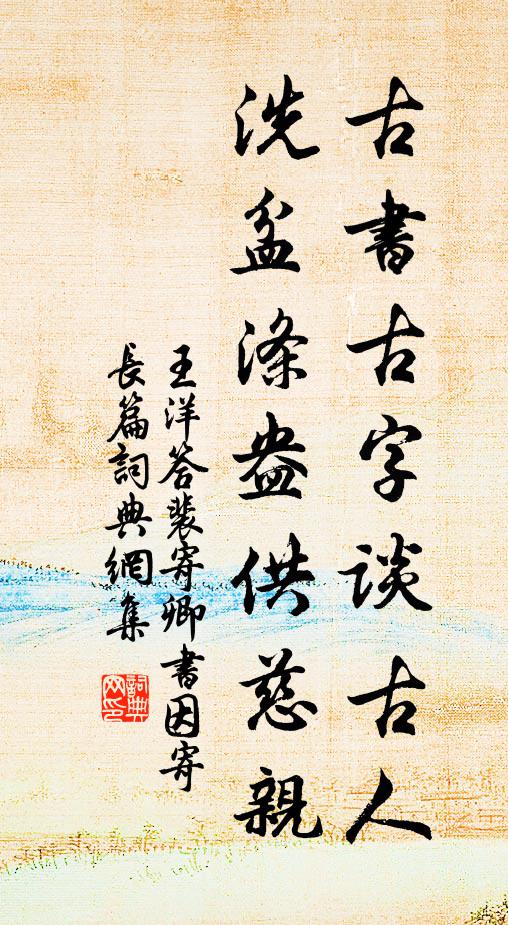 古書古字談古人
洗盆滌盎供慈親
王洋答裴寄卿書因寄
長篇詞典網集
詞典網印